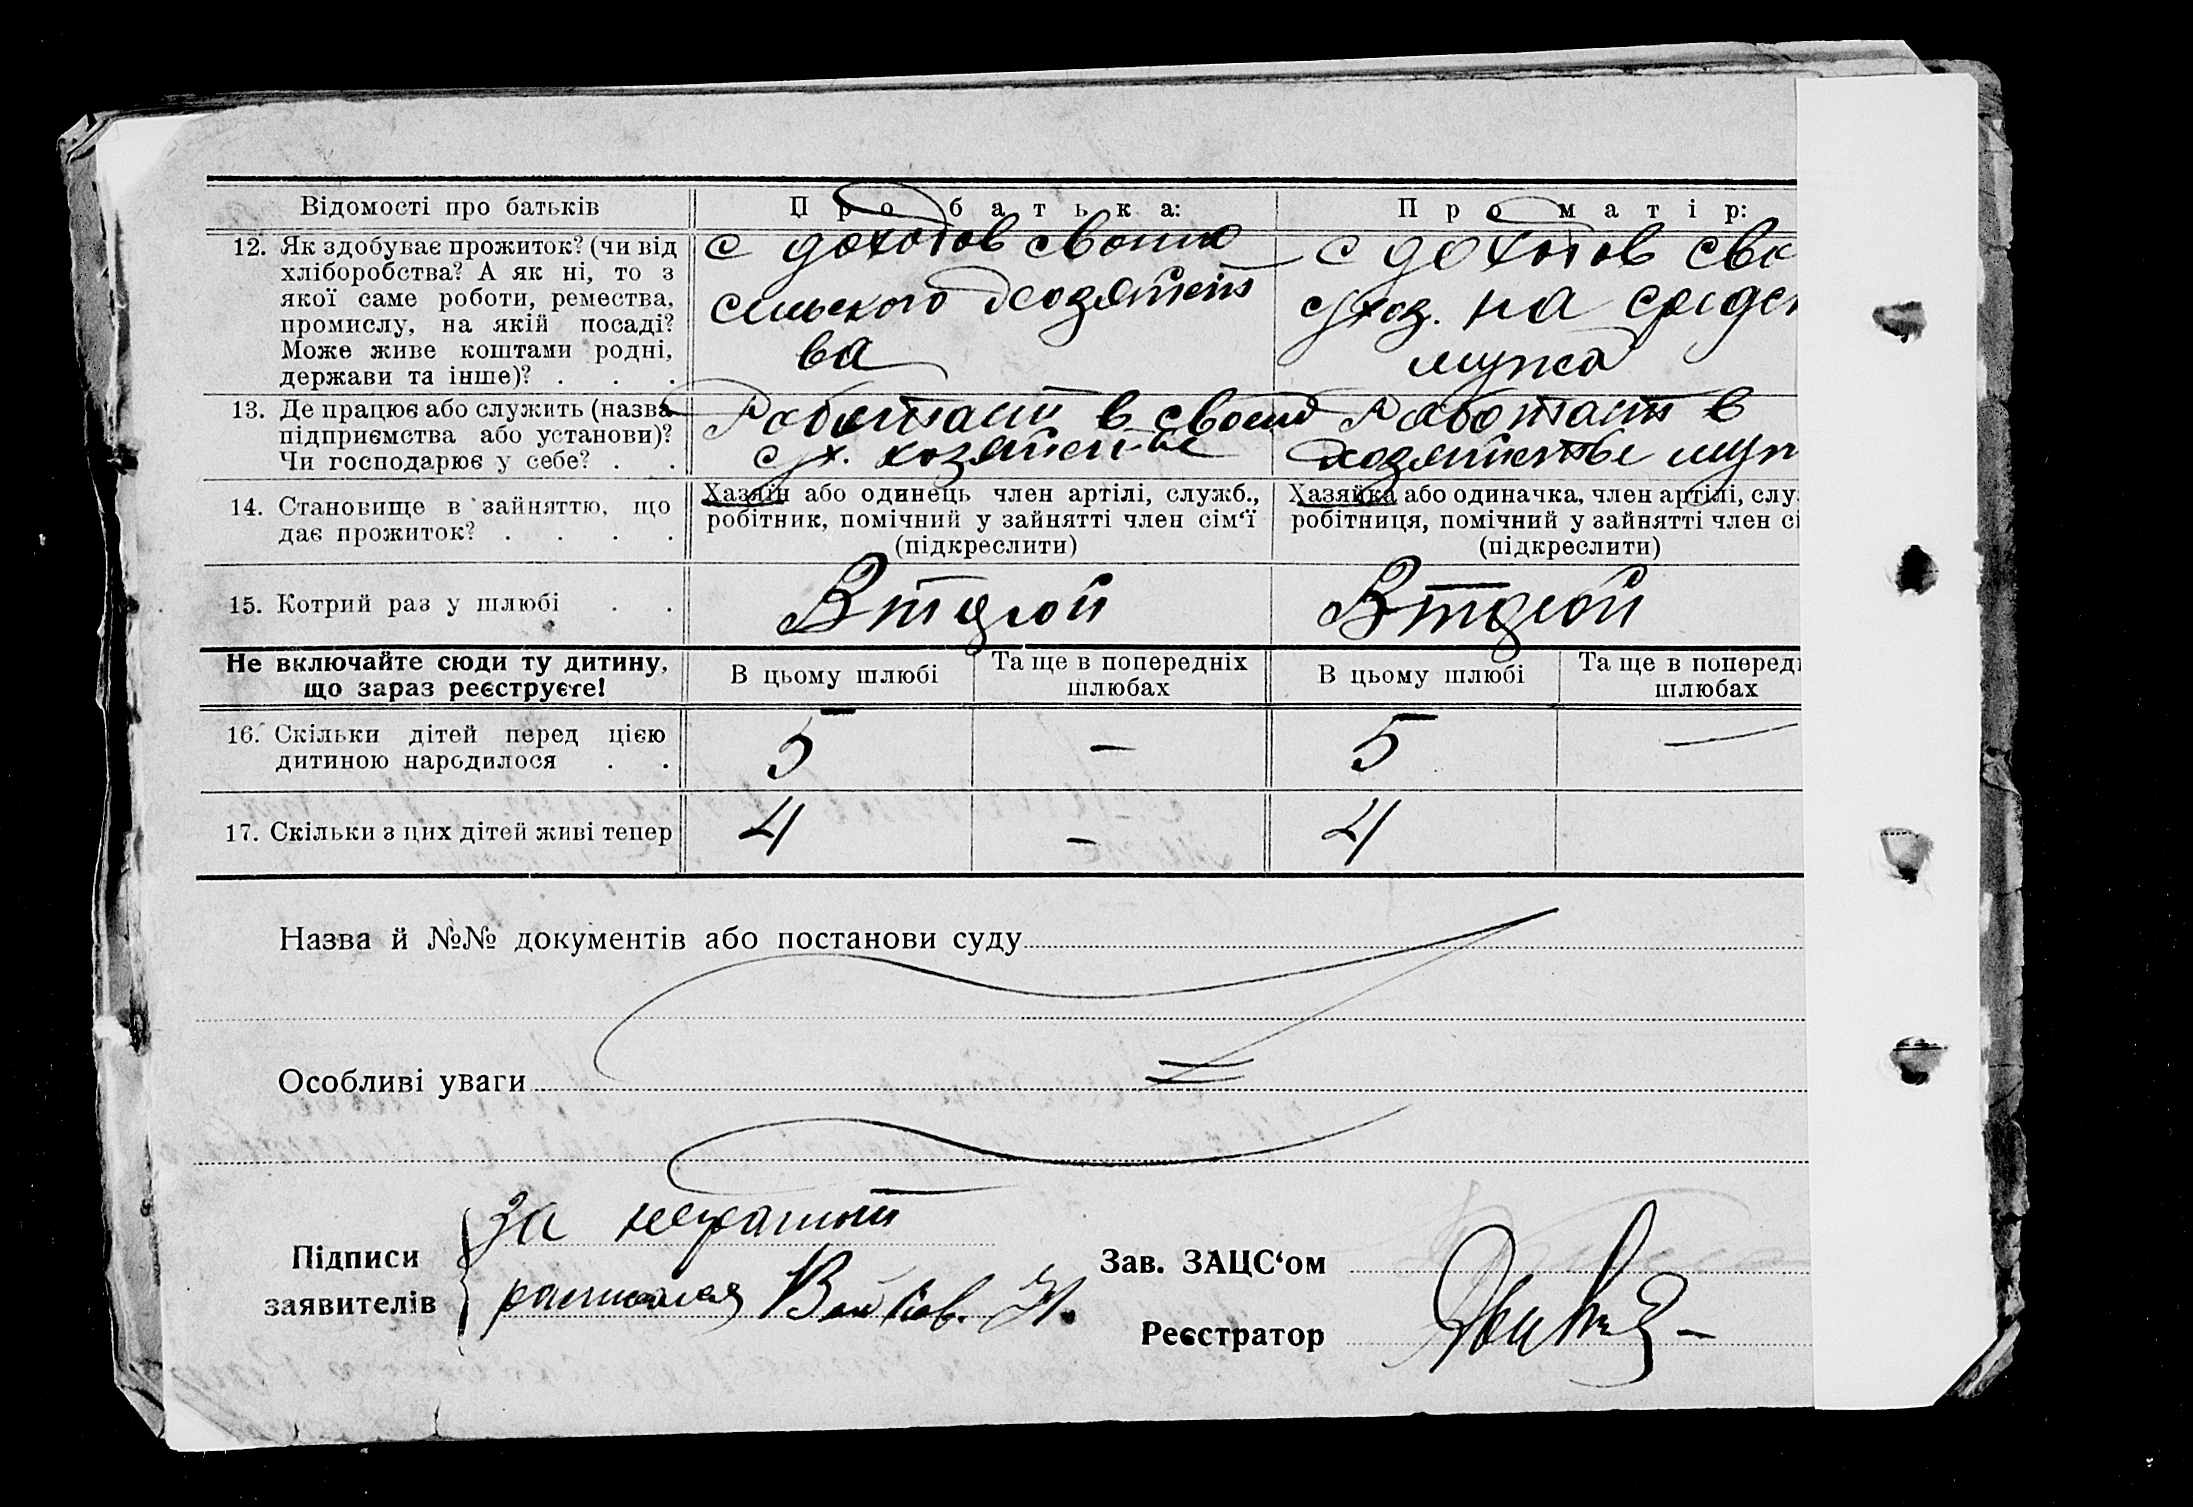 Відомості про батьків
Про батька:
Про матір:
12. Як здобуває прожиток? (чи від
хліборобства? А як ні, то з
якої саме роботи, ремества,
промислу, на якій посаді?
Може живе коштами родні,
держави та інше)? . . .
с доходов своего
сельского хозяйст
ва
с доходов сво
с/хоз. на средст
мужа
13. Де працює або служить (назва
підприємства або установи)?
Чи господарює у себе? . .
Работает в своем
с/х. хозяйстве
Работает в
хозяйстве муж
14. Становище в зайняттю, що
дає прожиток? . . . .
Хазяїн або одинець член артілі, служб.,
робітник, помічний у зайнятті член сім‘ї
(підкреслити)
Хазяйка або одиначка, член артілі, слу
робітниця, помічний у зайнятті член сі
(підкреслити)
15. Котрий раз у шлюбі . .
Второй
Второй
Не включайте сюди ту дитину,
що зараз реєструєте!
В цьому шлюбі
Та ще в попередніх
шлюбах
В цьому шлюбі
Та ще в поперед
шлюбах
16. Скільки дітей перед цією
дитиною народилося . .
5
—
5
—
17. Скільки з цих дітей живі тепер
4
—
4
Назва й №№ документів або постанови суду
Особливі уваги
Підписи
заявителів
за неграмот
Зав. ЗАЦС‘ом
Реєстратор